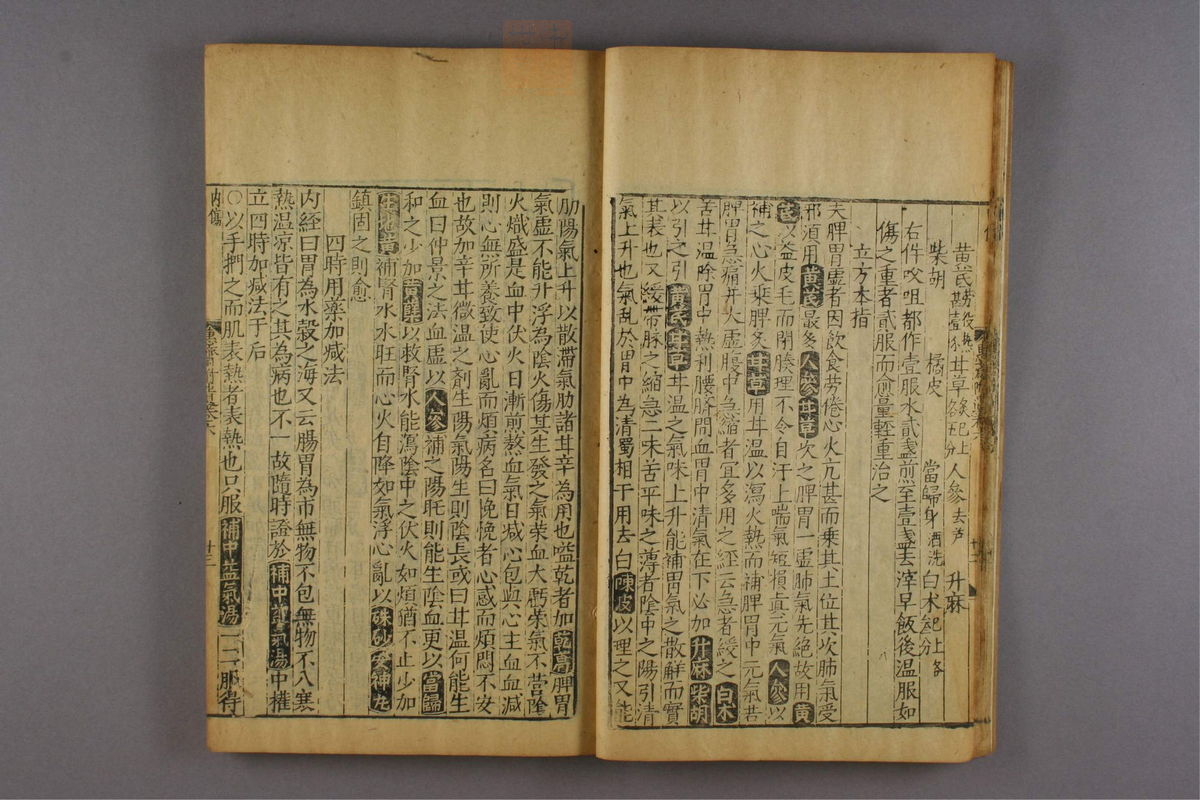 黄芪 甘草 人參去芦 升麻
柴胡 橘皮 當歸身酒洗 白术
右件㕮咀都作壹服水貳盞煎至壹盞去滓早飯後温服如
傷之重者貳服而愈量輕重治之
立方本指
夫脾胃虚者因飲食勞倦心火亢甚而乗其土位其次肺氣受
邪湏用黄芪最多人參甘草次之脾胃一虚肺氣先絶故用黄
芪以益皮毛而閉腠理不令自汗上喘氣短損其元氣人參以
補之心火乗脾炙甘草用甘温以瀉火熱而補脾胃中元氣若
脾胃急痛并大虚腹中急縮者宜多用之經云急者緩之白术
苦甘温除胃中熱利腰臍間血胃中清氣在下必加升麻柴胡
以引之引黄芪甘草甘温之氣味上升能補胃氣之散解而實
其表也又緩帶脉之縮急二味苦平味之薄者陰中之陽引清
氣上升也氣乱於胃中為清濁相干用去白陳皮以理之又能
助陽氣上升以散滯氣助諸甘辛為用也嗌乾者加乾葛脾胃
氣虚不能升浮為陰火傷其生發之氣荣血大虧荣氣不营陰
火熾盛是血中伏火日漸煎熬血氣日减心包與心主血血减
則心無所養致使心亂而煩病名曰悗悗者心惑而煩悶不安
也故加辛甘微温之剤生陽氣陽生則陰長或曰甘温何能生
血曰仲景之法血虚以人參補之陽旺則能生陰血更以當歸
和之少加黄蘗以救腎水能瀉陰中之伏火如煩猶不止少加
生地黄補腎水水旺而心火自降如氣浮心亂以硃砂安神丸
鎮固之則愈
四時用藥加减法
内經曰胃為水穀之海又云腸胃為市無物不包無物不入寒
熱温凉皆有之其為病也不一故隨時證於補中益氣湯中權
立四時加减法于后
○以手捫之而肌表熱者表熱也只服補中益氣湯一二服得
内傷
廿三